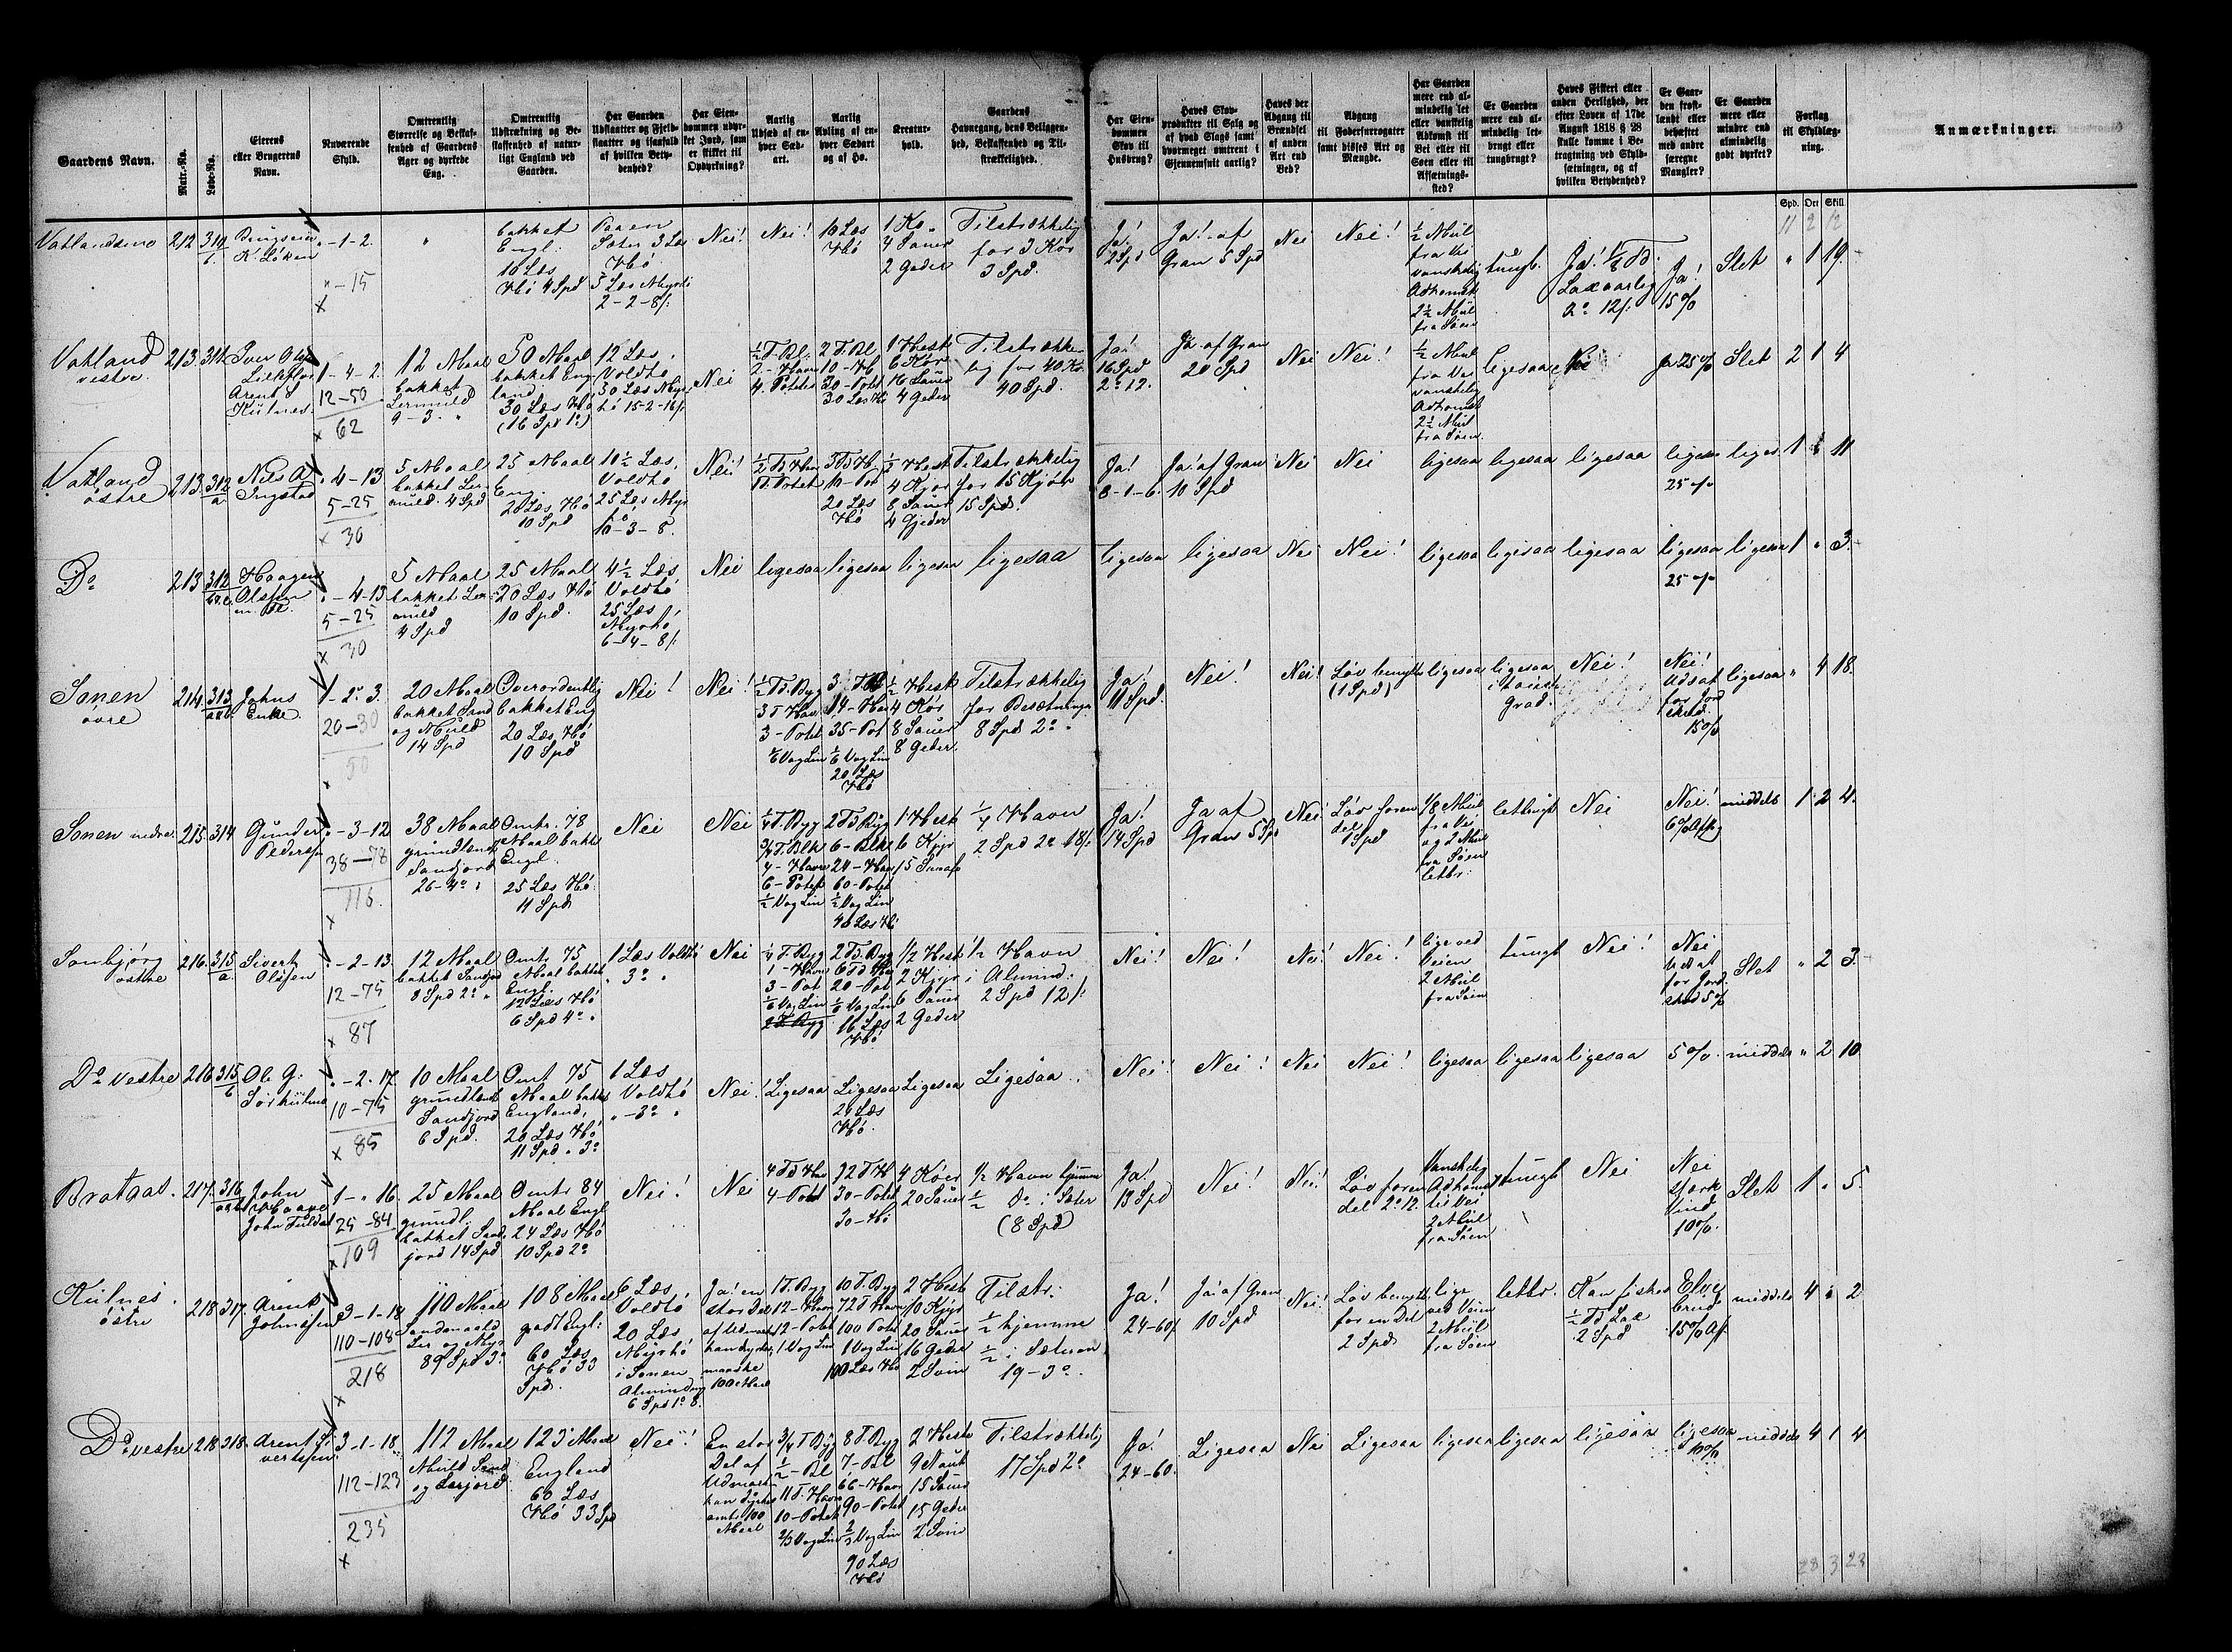 Gaardens Navn.
Matr.-No.
Løbe-No.
Eierens
eller Brugerens
Navn.
Nuværende
Skyld.
Omtrentlig
Størrelse og Beskaf-
fenhed af Gaardens
Ager og dyrkede
Eng.
Omtrentlig
Udstrækning og Be-
skaffenhed af natur-
ligt England ved
Gaarden.
Har Gaarden
Udslaatter og Fjeld-
slaatter og isaafald
af hvilken Bety-
denhed?
Har Eien-
dommen udyr-
ket Jord, som
er skikket til
Opdyrkning?
Aarlig
Udsæd af en-
hver Sæd-
art.
Aarlig
Avling af en-
hver Sædart
og af Hø.
Kreatur-
hold.
Gaardens
Havnegang, dens Beliggen-
hed, Beskaffenhed og Til-
strækkelighed.
Har Eien-
dommen
Skov til
Husbrug?
Haves Skov-
produkter til Salg og
af hvad Slags samt
hvormeget omtrent i
Gjennemsnit aarlig?
Haves der
Adgang til
Brændsel
af anden
Art end
Ved?
Adgang
til Fodersurrogater
samt disses Art og
Mængde.
Har Gaarden
mere end al-
mindelig let
eller vanskelig
Adkomst til
Vei eller til
Søen eller til
Afsætnings-
sted?
Er Gaarden
mere end al-
mindelig let-
brugt eller
tungbrugt?
Haves Fiskeri eller
anden Herlighed, der
efter Loven af 17de
August 1818 § 28
skulle komme i Be-
tragtning ved Skyld-
sætningen, og af
hvilken Betydenhed?
Er Gaar-
den frost-
lændt eller
behæftet
med andre
særegne
Mangler?
Er Gaarden
mere eller
mindre end
almindelig
godt dyrket?
Forslag
til Skyldlæg-
ning.
Anmærkninger.
Spd. Ort Skill.
11 2 12
212 310
K. Løken
" - 1 - 2.
" - 15
x
"
bakket
Engl.
10 Læs
Hø 4 Spd
Sæter 3 Læs
Hø
5 Læs Myrhø
2 - 2 - 8 /:
Nei!
Nei!
10 Læs
Hø
1 Ko.
4 Sauer
2 Geder
Tilstrækkelig
for 3 Kør
3 Spd.
Ja!
2 Spd
Ja! af
Gran 5 Spd
Nei
Nei!
½ Miil
fra Vei
vanskelig
Adkomst
2½ Miil
fra Søen
tungb.
Ja!
Lax aarlig
2° 12 /:
Ja!
15 %
Slet
" 1 19.
Vatland
vestre.
213. 311
1 - 4 - 2.
12 - 50
x 62
12 Maal
bakket
Lermuld
9 - 3. "
50 Maal
bakket Eng
land
30 Læs Hø
(16 Spd 1°)
12 Læs
Voldhø
30 Læs Myr
hø 15 - 2 - 16 /:
Nei
½ T. Bl.
2 - Havre
4. Poteter
2 T. Bl
30 - Potet
30 Læs Hø
1 Hest
6 Køer
16 Sauer
4 Geder
Tilstrække-
lig for 40 Kr
40 Spd.
Ja!
16 Spd
2° 12.
Ja af Gran
20 Spd
Nei
Nei!
½ Miil
fra Vei
vanskelig
Adkomst
2½ Miil
fra Søen.
ligesaa
Nei
Ja 25 %
Slet
2 1 4
Vatland
østre
213. 312
a
Nils A
" 4 - 13
5 - 25
x 30
5 Maal
bakket Ler
muld. 4 Spd
25 Maal
Eng.
20 Læs Hø
10 Spd
10½ Læs
Voldhø
25 Læs Myr
hø
10 - 3 - 8.
Nei!
20 Læs
Hø
½ Hest
4 Kjør
8 Sauer
4 Gjeder
Tilstrækkelig
for 15 Kjør
15 Spd.
Ja!
8 - 1 - 6.
Ja! af Gran
10 Spd
Nei
Nei
ligesaa
ligesaa
ligesaa
25 %
1 " 11
D°
213 312
Haagen
Olsen
" - 4 - 13
5 - 25
x 30
5 Maal
bakket Ler
muld
4 Spd
25 Maal
20 Læs Hø
10 Spd.
4½ Læs
Voldhø
25 Læs
Myrhø
6 - 4 - 8 /:
Nei
ligesaa
ligesaa
ligesaa
ligesaa
ligesaa
ligesaa
Nei
Nei!
ligesaa
ligesaa
ligesaa
ligesaa
25 %
ligesaa
1 " 3.
Sonen
øvre
214. 313
Johns
Enke
1 - 2° 3.
20 - 30
50
20 Maal
bakket Sand
og Muld
14 Spd
Overordentlig
bakket Eng
20 Læs Hø
10 Spd
Nei!
Nei!
½ Td. Byg
3 T Havre
3 - Potet
35 - Pot
20 Læs
Hø
½ Hest
4 Kør
8 Sauer
8 Geder
Tilstrækkelig
for Besætningen
8 Spd 2° "
Ja!
11 Spd.
Nei!
Nei!
Løv benyttes
(1 Spd)
ligesaa
ligesaa
Grad.
Nei!
Nei!
Udsat
for Jord
skred.
15 %
ligesaa
" 4 18.
Sonen nedre.
215. 314
Gunder
Pedersen
" - 3 - 12
38 - 78
116.
x
38 Maal
grundlændt
Sandjord
26 - 4° "
Omtr. 78
Maal bakke
Engl.
25 Læs Hø
11 Spd
Nei
Nei
¼ T. Byg
¾ T. Blk
4 - Havre
6 - Potet
½ Vog Lin
2 Td Byg
6 - Blk
24 - Hav
60 - Potet
½ Vog Lin
40 Læs Hø
1 Hest
6 Kjør
15 Smaaf
¼ Havn
2 Spd 2° 18 /:
Ja!
14 Spd
Ja af
Gran 5 Spd
Nei
Løv foren
del
1 Spd
1/8 Miil
fra Vei
og 2 Miil
fra Søen
letbr.
letbrugt
Nei
Nei!
middels
1 " 2 4.
Sonbjørg
østre
216. 315
a.
Sivert
Olsen
" - 2 - 13
12 - 75
x 87
12 Maal
bakket Sandjord
8 Spd 2° "
Omtr 75
Maal bakket
Engl.
12 Læs Hø
6 Spd 4° "
1 Læs Voldhø
" 3° "
Nei
¼ T. Byg
1 - Havre
3 - Pot
2 Td. Byg
20 - Pot
16 Læs
Hø
½ Hest
2 Kjør
6 Sauer
2 Geder
½ Havn
i Almind.
2 Spd 12 /:
Nei!
Nei!
Nei!
Nei!
lige ved
Veien
2 Miil
fra Søen
tungt
Nei!
Nei
Udsat
for Jord
skred 5 %
Slet
" 2 3.
D° vestre
216 315
b
Ole G.
" - 2 - 17
10 - 75
x 85
10 Maal
grundlændt
Sandjord
6 Spd.
Omt 75
Maal bakket
England,
20 Læs Hø
11 Spd. 3°
1 Læs
Voldhø
" - 3° "
Nei!
Ligesaa
Ligesaa
24 Læs
Hø.
Ligesaa
Ligesaa.
Nei!
Nei!
Nei
Nei!
ligesaa
ligesaa
ligesaa
5 %.
middels
" 2 10
Brataas.
217. 316
John
1 - " 16.
25 - 84
x 109
25 Maal
grundl.
bakket Sand
jord 14 Spd
Omtr 84
Maal Engl
24 Læs Hø
10 Spd 2°
Nei!
Nei
4 Td Hav
4 - Potet
12 T H
30 - Potet
30 - Hø
4 Køer
20 Sauer
½ Havn hjemme
½ D° i Sæter
(8 Spd)
Ja!
13 Spd
Nei!
Nei!
Løv foren
del 2° 12.
Vanskelig
Adkomst
til Vei
2 Miil
fra Søen
tungt
Nei
Nei
stærk
Vind
10 %.
Slet
1 " 5.
østre
218 317.
Arent
Johnsen
3 - 1 - 18
110 - 108
218
x
110 Maal
Sandmuld
Ler og Myr
89 Spd 3°
108 Maal
godt Engl:
60 Læs
Hø 33
Spd.
6 Læs
Voldhø
20 Læs
Myrhø
i Sonen
Alminding
6 Spd 1° 8.
Ja! en
stor Del
af Udmark
kan dyrkes
maaske
100 Maal
1 T. Byg
12 - Havre
12 - Potet
1 Vog Lin
10 T. Byg
72 T Havre
100 Potet
1 Vog Lin
100 Læs Hø
2 Heste
10 Kjør
20 Sauer
16 Geder
2 Svin
Tilstr:
½ hjemme
½ i Sæteren
19 - 3°.
Ja!
24 - 60 /:
Ja af Gran
10 Spd
Nei!
Løv benyttes
for en Del
2 Spd.
lige
ved Veien
2 Miil
fra Søen
letbr.
Kan fiskes
½ Td Lax
2 Spd
Elve
brud
15 % Af.
middels
4 " 2
D° vestre
218 318.
3 - 1 - 18.
112 - 123
235
x
112 Maal
Muld Sand
og Lerjord.
123 Maal
England
60 Læs
Hø 33 Spd
Nei!
En stor
Del af
Udmarken
kan dyrkes
omtr 100
Maal
¾ T Byg
½ - Bl
11 T. Havre
10 - Potet
2/3 Vog Lin
8 T. Byg
7 - Bl
66 - Havre
90 - Potet
2/3 Vog Lin
90 Læs
Hø
2 Heste
9 Naut
15 Sauer
15 Geder
2 Svin
Tilstrækkelig
17 Spd 2°
Ja!
24 - 60.
Ligesaa
Nei
Ligesaa
ligesaa
ligesaa
ligesaa
ligesaa
10 %
middels
4 1 4
28 3 23